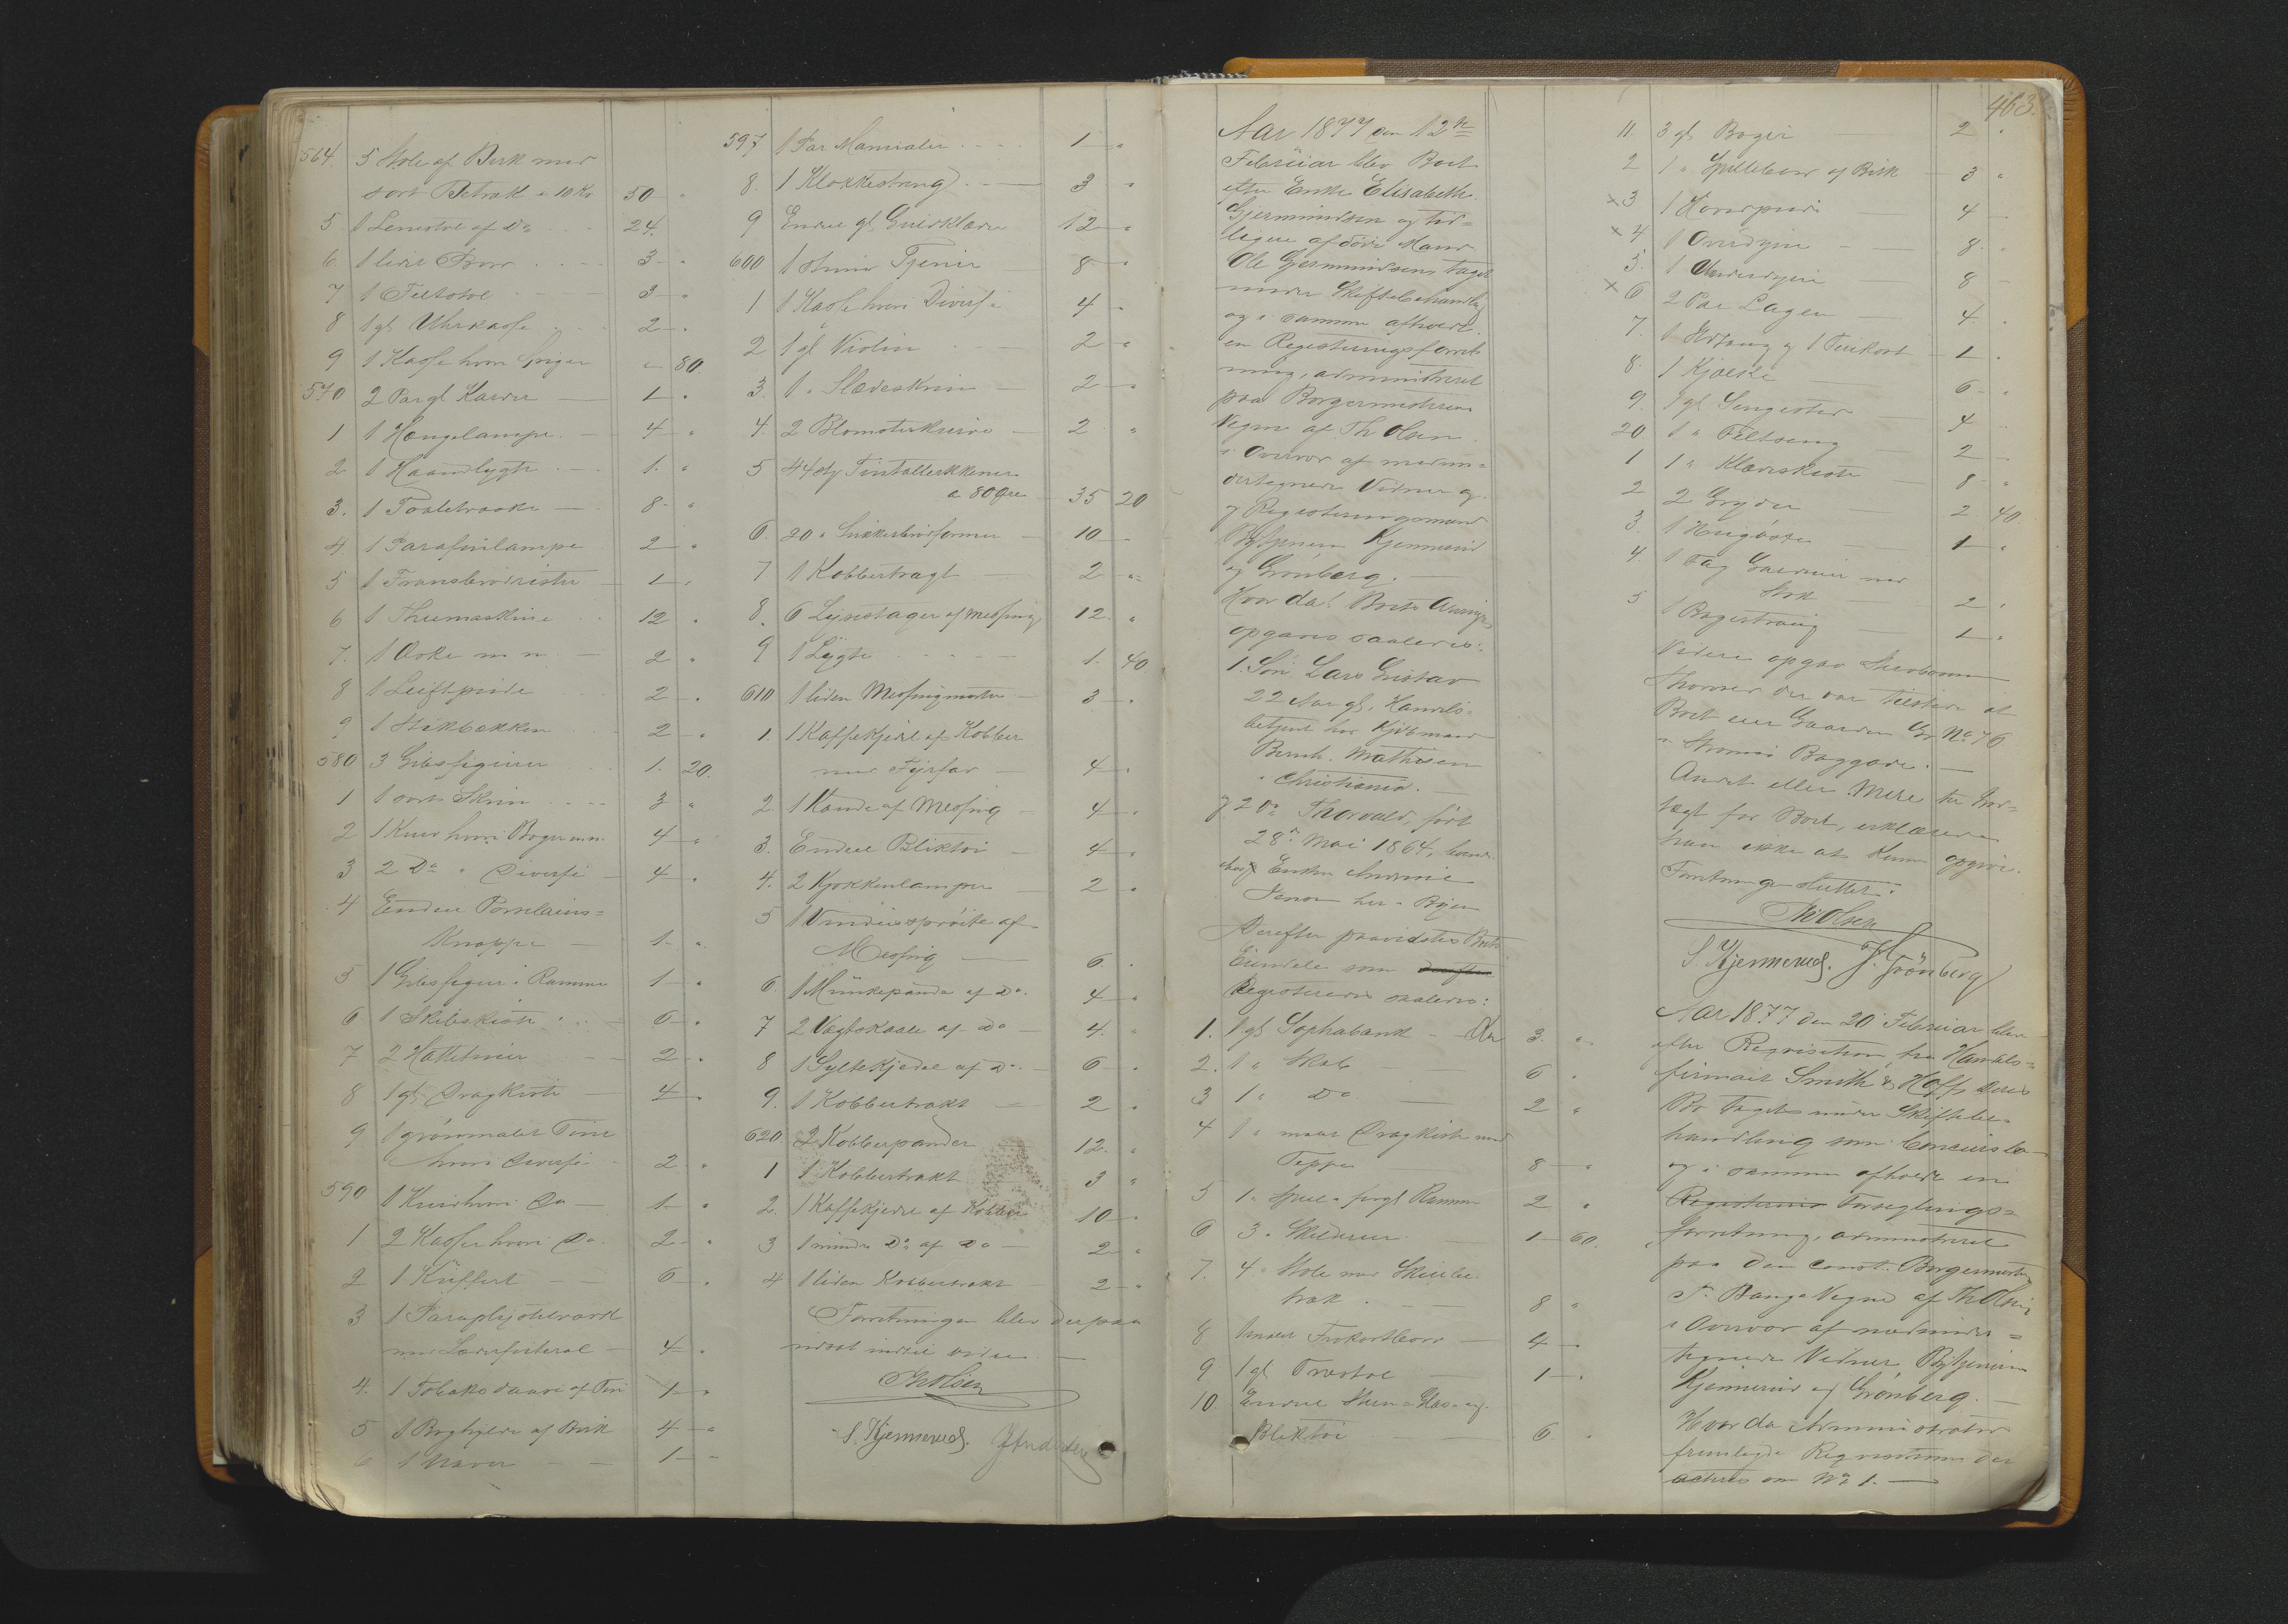 564. 5 Stole af Birk med
sort Betræk a 10 Kr 50 "
5 1 Lenestol af Do 24.
6. 1 lidet Bord 3 "
7 1 Feltstol 3 "
8 1 gl Uhrkasse 2 "
9 1 Kasse hvori " 80.
570 2 Par gl Karder 1 "
1 1 Hængelampe 4 "
2 1 Haandlygte 1. "
3. 1 8 "
4 1 Parafinlampe 2 "
5 1 Franskbrødrister 1 "
6 1 Themaskine 12 "
7. 1 Æske m m 2 "
8 1 Luftpude 2 "
9 1 Stikbækken 2 "
580 3 Gibsfigurer 1. 20.
1 1 sort Skrin 3 "
2 1 Kurv hvori Bøger m.m. 4 "
3 2 Do " Diverse 4 "
4 Endel Porcelains=
Knappe 1. "
5 1 Gibsfigur i Ramme 1 "
6 1 Skibskiste 6 "
7 2 Hattetiner 2 "
8 1 gl Dragkiste 4 "
9 1 grønmalet Tine
hvori Diverse 2 "
590 1 Kurv hvori Do 1 "
1 2 Kasser hvori Do 2 "
2 1 Kuffert 6 "
3 1
med Læderfuteral 4 "
4. 1 Tobaksdaase af Tin 1 "
5 1 Boghylde af Birk 4 "
6 1 Naver 1 "
597 1 Par Manualer 1 "
8. 1 Klokkestreng 3 "
9 Endel gl Gangklæder 12 "
600 1 Tjener 8 "
1 1 Kasse hvori Diverse 4 "
2 1 gl Violin 2 "
3. 1 " Slædeskrin 2 "
4. 2 Blomsterkurve 2 "
5 44 Stk Tintallerkkener
a 80 Øre 35 20
6. 20 " Sukkerbrødformer 10
7 1 Kobbertragt 2 "
8. 6 Lysestager af Messing 12. "
9 1 Lygte 1. 40
610 1 liden Messingmorter 3 "
1. 1 Kaffekjedel af Kobber
med Fyrfad 4 "
2. 1 Kande af Messing 4 "
3. Endeel Bliktøi 4 "
4. 2 Kjøkkenlamper 2 "
5 1 Vinduessprøite af
Messing 6. "
6. 1 Munkepande af Do. 4 "
7 2 Vagtskaale af Do 4. "
8 1 Syltekjedel af Do. 6 "
9. 1 Kobbertrakt 2 "
620. 3 Kobberpander 12. "
1 1 Kobbertrakt 3 "
2. 1 Kaffekjedel af Kobber 10 "
3 1 mindre Do af Do 2 "
4 1 liden Kobbertrakt 2 "
Forretningen blev derpaa
udsat indtil videre
Th Olsen
S. Kjennerud.
463.
Aar 1877 den 12te
Februar blev Boet
efter Enke Elisabeth
Gjermundsen og tid=
ligere afdøde Mand
Ole Gjermundsens taget
under Skiftebehandling
og i samme afholdt
en Registreringsforret=
ning, administreret
paa Borgermesterens
Vegne af Th Olsen
i Overvær af medun=
dertegnede Vidner og
Registreringsmænd
Bytjenerne Kjennerud
og Grønberg.
Hvor da! Boets Arvinger
opgaves saaledes:
1. Søn Lars Gustav
22 Aar gl, Handels=
betjent hos Kjøbmand
Bernh. Mathisen
i Christiania.
og 2 Do Thorvald, født
28de Mai 1864,
hos Enken
Jensen her i Byen
Derefter paavistes Boets
Eiendele som
Registreredes saaledes:
1. 1 gl Sophabænk Kr 3. "
2. 1 " Skab 6 "
3 1 " Do 2 "
4 1 " malet Dragkiste med
Teppe 8 "
5 1 " Speil i forgl Ramme 2 "
6 3 " Skilderier 1 60.
7. 4 " Stole med
træk 8 "
8 1 malet Frokostbord 4 "
9. 1 gl Træstol 1 "
10. Endel Steen= Glas= og
Bliktøi 6 "
11. 3 gl Bøger 2 "
2 1 " Spillebord af Birk 3 "
x 3 1 Hovedpude 4
x 4 1 Overdyne 8 "
5. 1 Underdyne 8
x 6 2 Par Lagen 4 "
7. 1 Ildtang og 1 1 "
8. 1 Kjole 6 "
9. 1 gl Sengested 4 "
20 1 " Feltseng 2
1 1 " Klædeskiste 8 "
2 2 Gryder 2 40
3. 1 1 "
4. 1 Fag Gardiner med
Stok 2 "
5 1 1 "
Videre opgav Stervboens
der var tilstede at
Boet eier Gaarden Gr No 76
i Strømsø Baggade.
Andet eller Mere til Ind=
tægt for Boet, erklærede
han ikke at kunne opgive.
Forretningen sluttet.
Th Olsen
S Kjennerud. Grönberg
Aar 1877 den 20 Februar blev
efter Requisition fra Handels=
firmaet Smith & Hoffs deres
Bo taget under Skiftebe=
handling som Concursbo
og i samme afholdt en
Registrerings Forseglings=
forretning, administreret
paa den const. Borgermester
Vegne af Th Olsen
i Overvær af medunder=
tegnede Vidner Bytjenerne
Kjennerud og Grønberg.
Hvor da Administrator
fremlagde Requisitionen der
acteres om No 1.